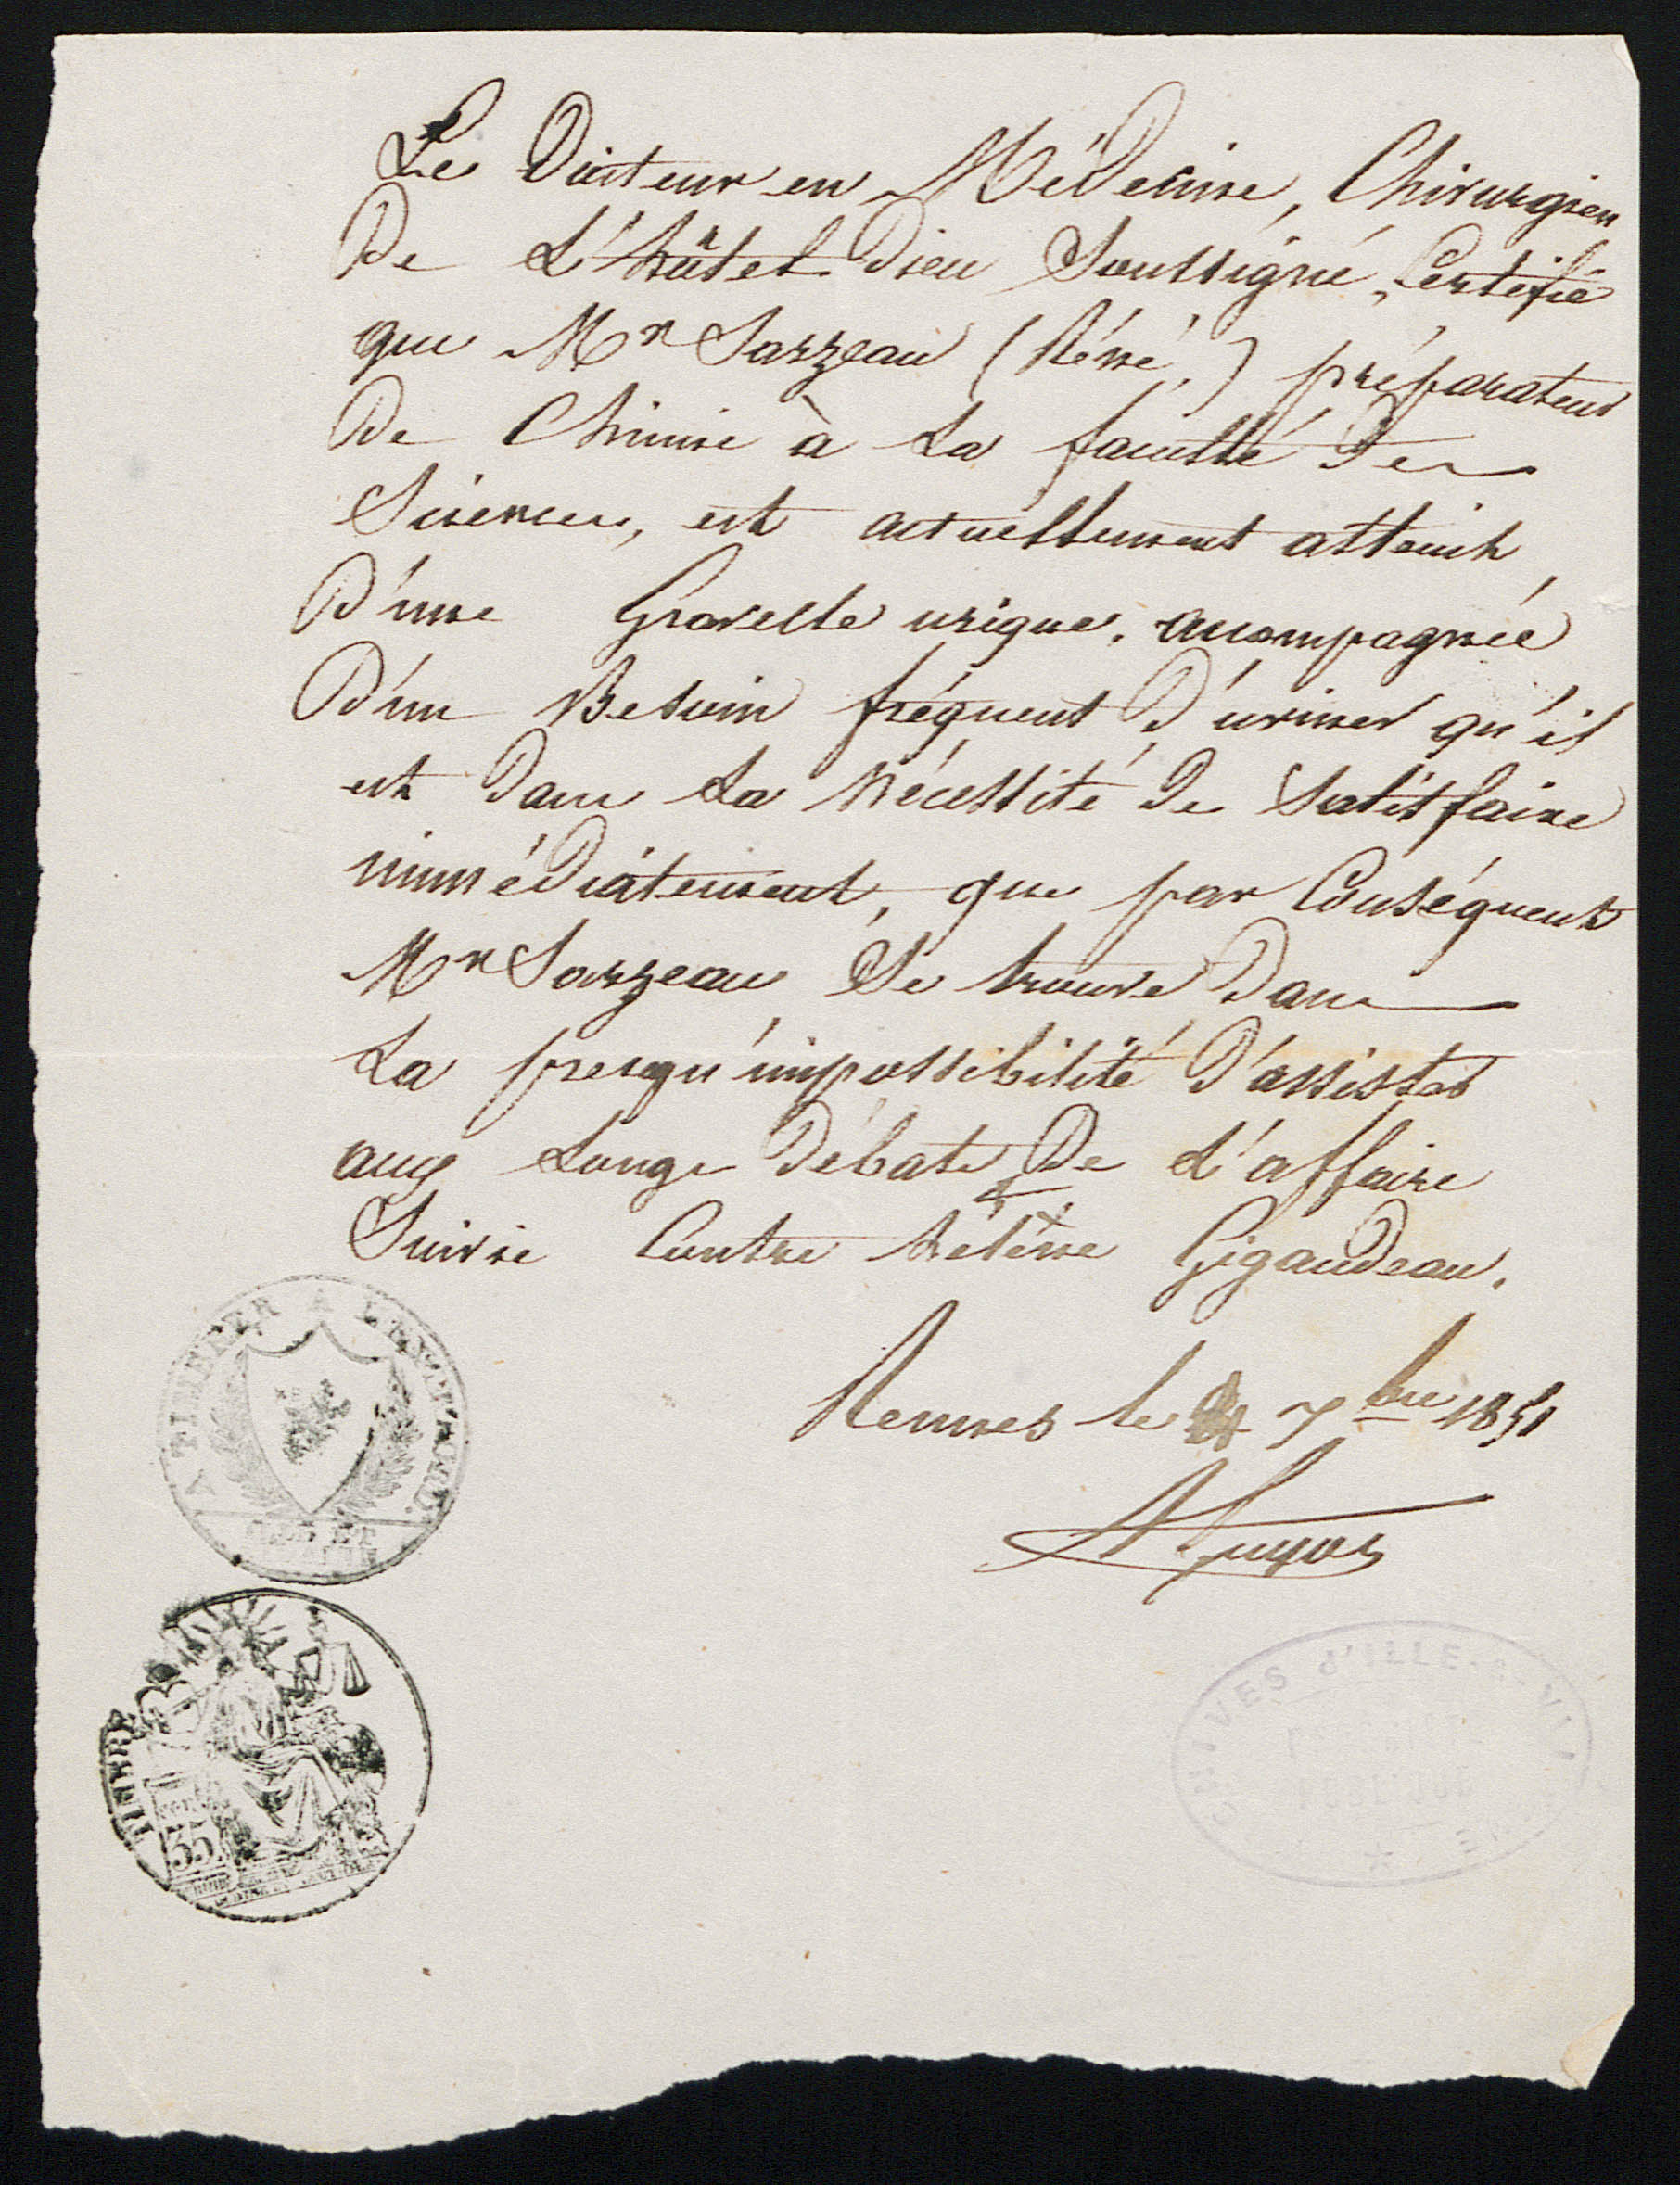 Le Docteur en Médecine, Chirurgien
De L'hôtel Dieu Soussigné, Certifie
que Mr Sarzeau (Réné,) préparateur
De Chimie à La faculté Des
Sciences, est actuellement atteint
D'une Gravelle urique, accompagnée
D'un Besoin fréquent D'uriner qu'il
est Dans La Nécessité De Satisfaire
immédiatement, que par Conséquent
Mr Sarzeau Se trouve Dans
La presqu'impossibilité D'assister
aux Longs Débats De L'affaire
Suivie Contre hélène Gigaudeau.
Rennes le 7bre 1851
A Guyot
A TIMBRER A L'EXTRAORD.
35
ARCHIVES d'ILLE-&-VILAINE